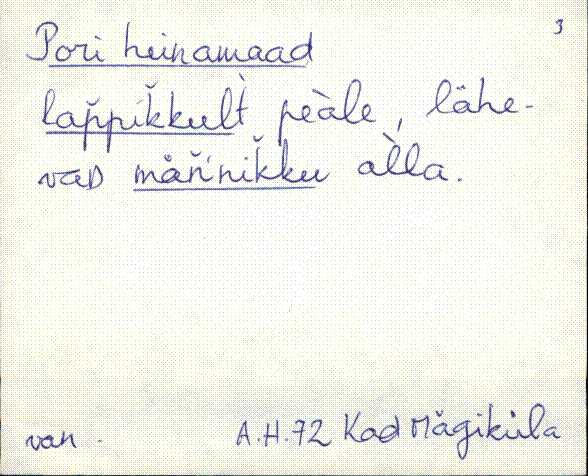 3
Pori heinamaad
kap̆pik̆kul̀t peàle, lähe-
vad män̆'nik̆ku al̀la.
van.
A.H.72 Kod Mägiküla